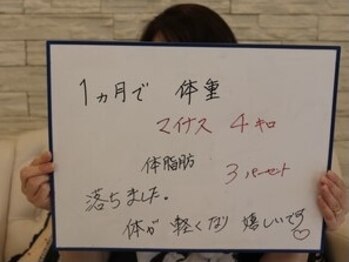 1ヵ月で 体重
マイナス 4キロ
体脂肪 3パーセント
落ちました。
体が 軽くなり 嬉しいです♡